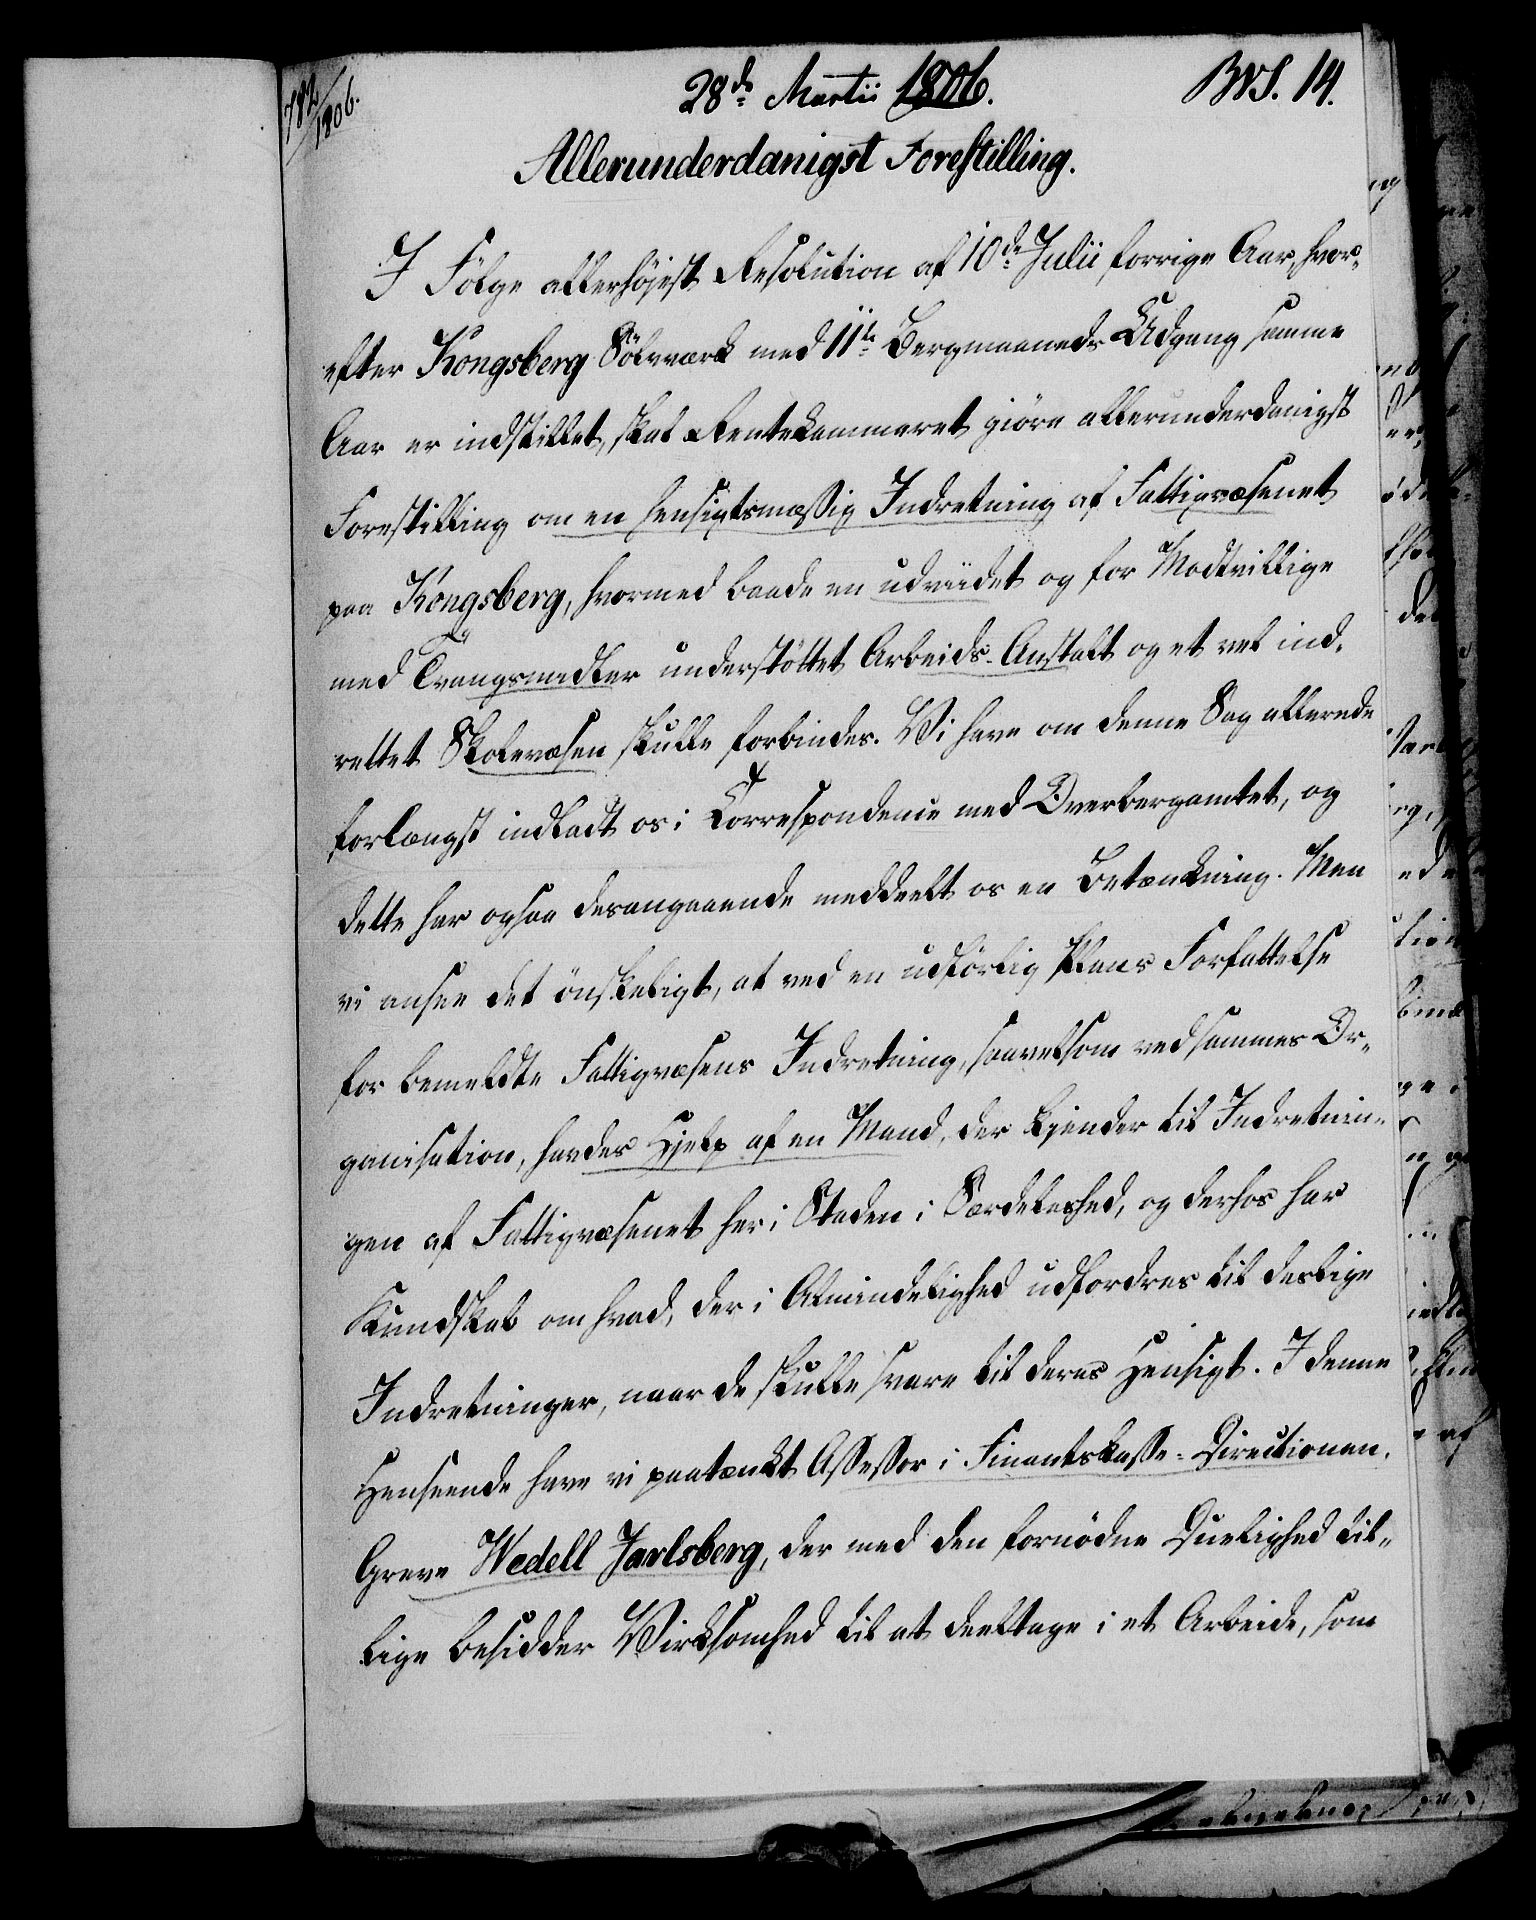 782/1806.
28de Martii 1806.
BVS. 14.
Allerunderdanigst Forestilling.
I Følge allerhøjest Resolution af 10de Julii forrige Aar, hvor-
efter Kongsberg Sølvværk med 11te Bergmaaneds Udgang samme
Aar er indstillet, skal Rentekammeret giøre allerunderdanigst
Forestilling om en hensigtsmæssig Indretning af Fattigvæsenet
paa Kongsberg, hvormed baade en udviidet og for Modtvillige
med Tvangsmidler understøttet Arbeids-Anstalt og et vel ind-
rettet Skolevæsen skulle forbindes. Vi have om denne Sag allerede
forlængst indladt os i Correspondence med Overbergamtet, og
dette har ogsaa desangaaende meddeelt os en Betænkning. Men
vi ansee det ønskeligt, at ved en udførlig Plans Forfattelse
for bemeldte Fattigvæsens Indretning, saavelsom ved sammes Or-
ganisation, havdes Hjelp af en Mand, der kjender til Indretnin-
gen af Fattigvæsenet her i Staden i Særdeleshed, og derhos har
Kundskab om hvad, der i Almindelighed udfordres til deslige
Indretninger, naar de skulle svare til deres Hensigt. I denne
Henseende have vi paatænkt Assessor i Finantskasse-Directionen,
Greve Wedell Jarlsberg, der med den fornødne Duelighed til-
lige besidder Virksomhed til at deeltage i et Arbeide, som